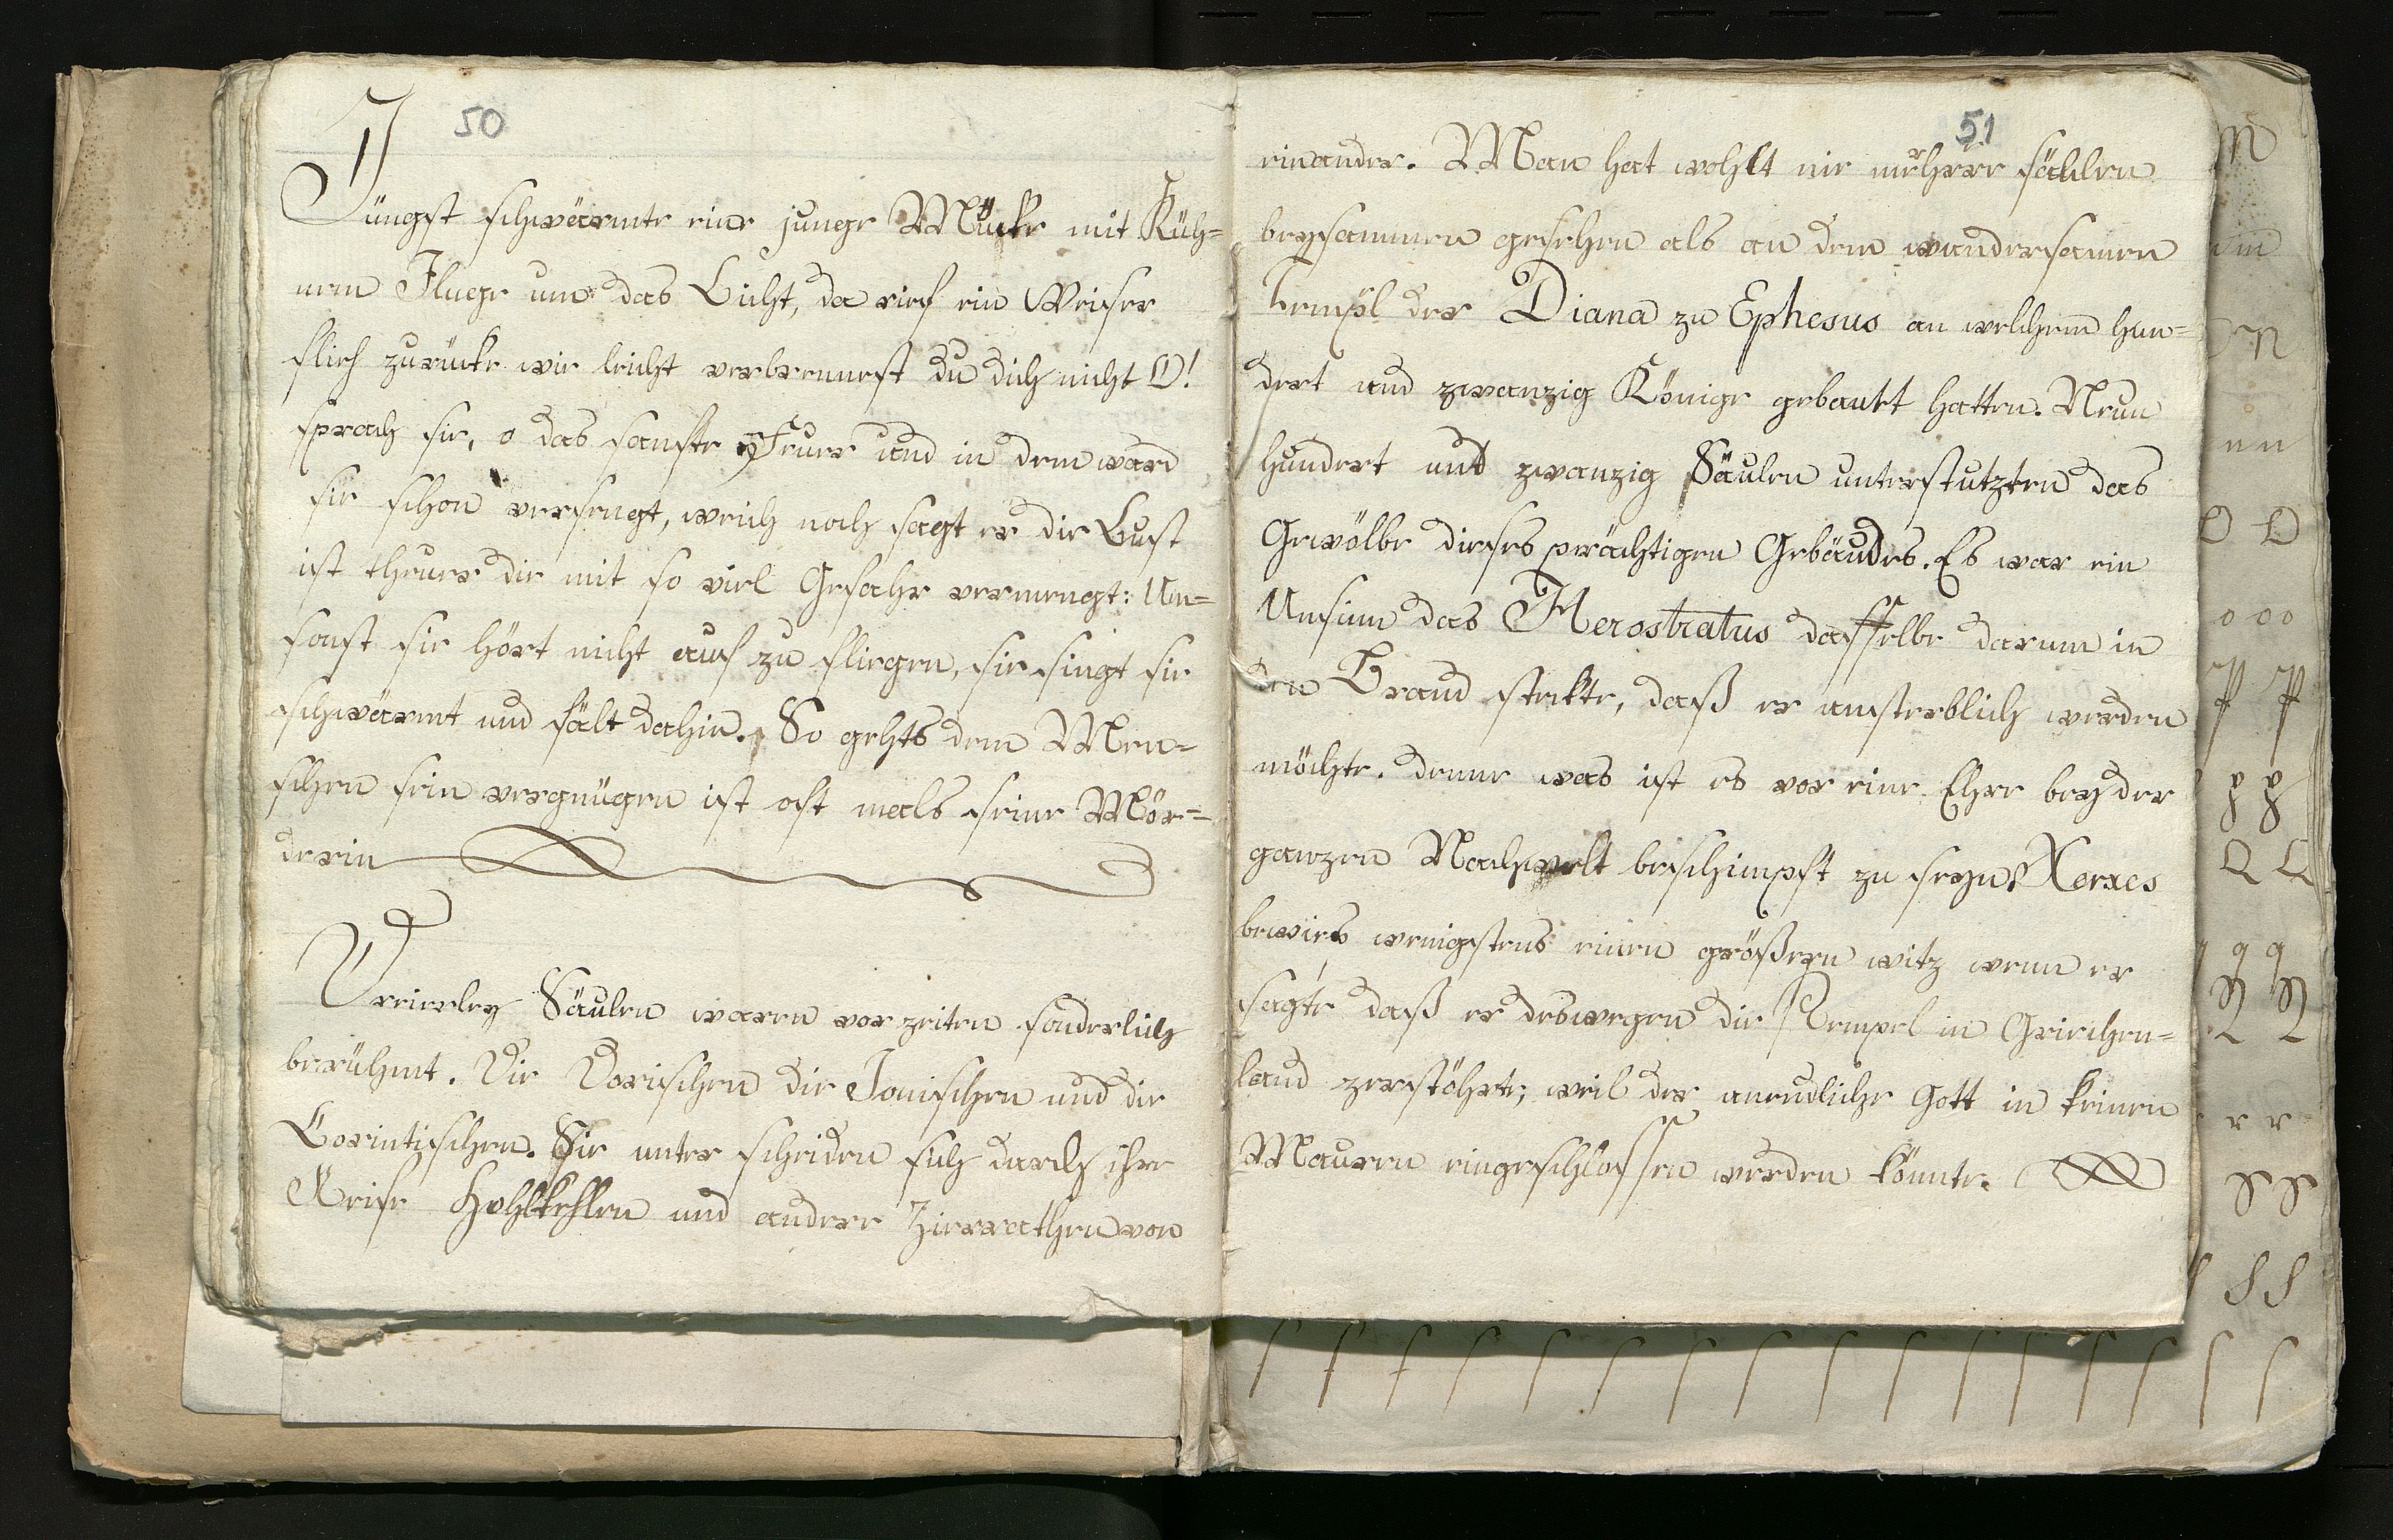 50
Jüngst schwärmte eine junge Mücke mit Küh=
nem Fluege um das Licht, da rief ein Weiser
flieh zurücke wie leicht verbrennest du dich nicht O!
sprach sie, o das sanfte Feuer und in dem ward
sie schon versengt, weich noch sagt er die Lust
ist theuer die mit so viel Gefahr vermengt: Um=
sonst sie hört nicht auf zu fliegen, sie singt sie
schwärmt und fält dahin. So gehts dem Men=
schen sein vergnügen ist oft mals seine Mör=
derin
Dreierley Säulen waren vor zeiten sonderlich
berühmt. Die Dorischen die Jonischen und die
Corintischen. Sie unter scheiden sich durch ihre
Reife Hohlkehlen und andere Zierrathen von
51
einander. Man hat wohlt nie mehrere säulen
beysammen gesehen als an dem wundersamen
Tempel der Diana zu Ephesus an welchem hun=
dert und zwanzig Könige gebautt hatten. Neun
hundert und zwanzig Säulen unterstutzten das
Gewölbe dieses prächtigen Gebäudes. Es war ein
Unsinn das Herostratus dasselbe darum in
den Brand stekte, daß er unsterblich werden
möchte. denne was ist es vor eine Ehre bey der
ganzen Nachwelt beschimpft zu seyn? Xerxes
bewies wenigstens einen größern witz wenn er
sagte daß er deswegen die Tempel in Griechen=
land zerstöhrte; weil der unendliche Gott in keinen
Mauren eingeschlossen werden könnte.